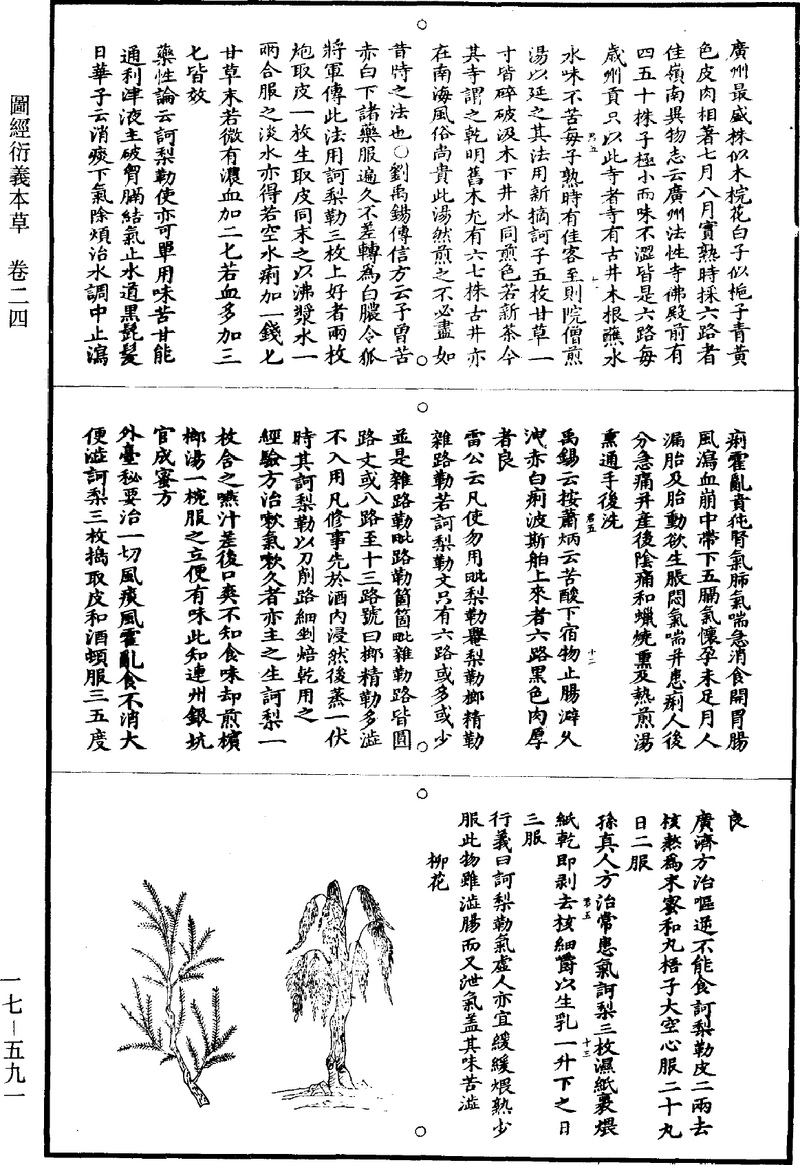 圖經衍義本草　卷二四
一七—五九一
廣州最盛株似木梡花白子似梔子青黃
色皮肉相著七月八月實熟時採六路者
佳嶺南異物志云廣州法性寺佛殿前有
四五十株子極小而味不澀皆是六路每
歲州貢只以此寺者寺有古井木根蘸水
水味不苦每子熟時有佳客至則院僧煎
湯以延之其法用新摘訶子五枚甘草一
寸皆碎破汲木下井水同煎色若新茶今
其寺謂之乾明舊木尤有六七株古井亦
在南海風俗尚貴此湯然煎之不必盡如
昔時之法也○劉禹錫傳信方云予曾苦
赤白下諸藥服遍久不差轉為白膿令狐
將軍傳此法用訶梨勒三枚上好者兩枚
炮取皮一枚生取皮同末之以沸漿水一
兩合服之淡水亦得若空水痢加一錢匕
甘草末若微有濃血加二匕若血多加三
匕皆效
藥性論云訶梨勒使亦可單用味苦甘能
通利津液主破胷膈結氣止水道黑髭髮
日華子云消痰下氣除煩治水調中止瀉
痢霍亂賁㹠腎氣肺氣喘急消食開胃腸
風瀉血崩中帶下五膈氣懷孕未足月人
漏胎及胎動欲生脹悶氣喘并患痢人後
分急痛并產後陰痛和蠟燒熏及熱煎湯
熏通手後洗
禹錫云按蕭炳云苦酸下宿物止腸澼久
洩赤白痢波斯舶上來者六路黑色肉厚
者良
雷公云凡使勿用毗梨勒罨梨勒榔精勒
雜路勒若訶梨勒文只有六路或多或少
並是雜路勒毗路勒箇箇毗雜勒路皆圓
路文或八路至十三路號曰榔精勒多澁
不入用凡修事先於酒內浸然後蒸一伏
時其訶梨勒以刀削路細剉焙乾用之
經驗方治欬氣欬久者亦主之生訶梨一
枚含之嚥汁差後口爽不知食味却煎檳
榔湯一椀服之立便有味此知連州銀坑
官成密方
外臺秘要治一切風痰風霍亂食不消大
便澁訶梨三枚擣取皮和酒頓服三五度
良
廣濟方治嘔逆不能食訶梨勒皮二兩去
核熬為末蜜和丸梧子大空心服二十丸
日二服
孫真人方治常患氣訶梨三枚濕紙裹煨
紙乾即剥去核細嚼以生乳一升下之日
三服
衍義曰訶梨勒氣虛人亦宜緩緩煨熟少
服此物雖澁腸而又泄氣盖其味苦澁
柳花